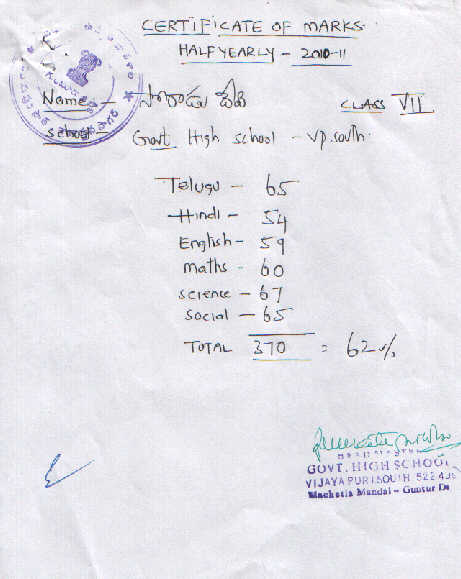 CERTIFICATE OF MARKS
HALFYEARLY - 2010-11
Name -
CLASS VII
School - Govt. High school - v.p.south.
Telugu - 65
Hindi - 54
English - 59
maths - 60
science - 67
social - 65
TOTAL 370 = 62%
HEADMASTER
GOVT. HIGH SCHOOL
VIJAYA PURI SOUTH 522 43
Machatla Mandal - Guntur